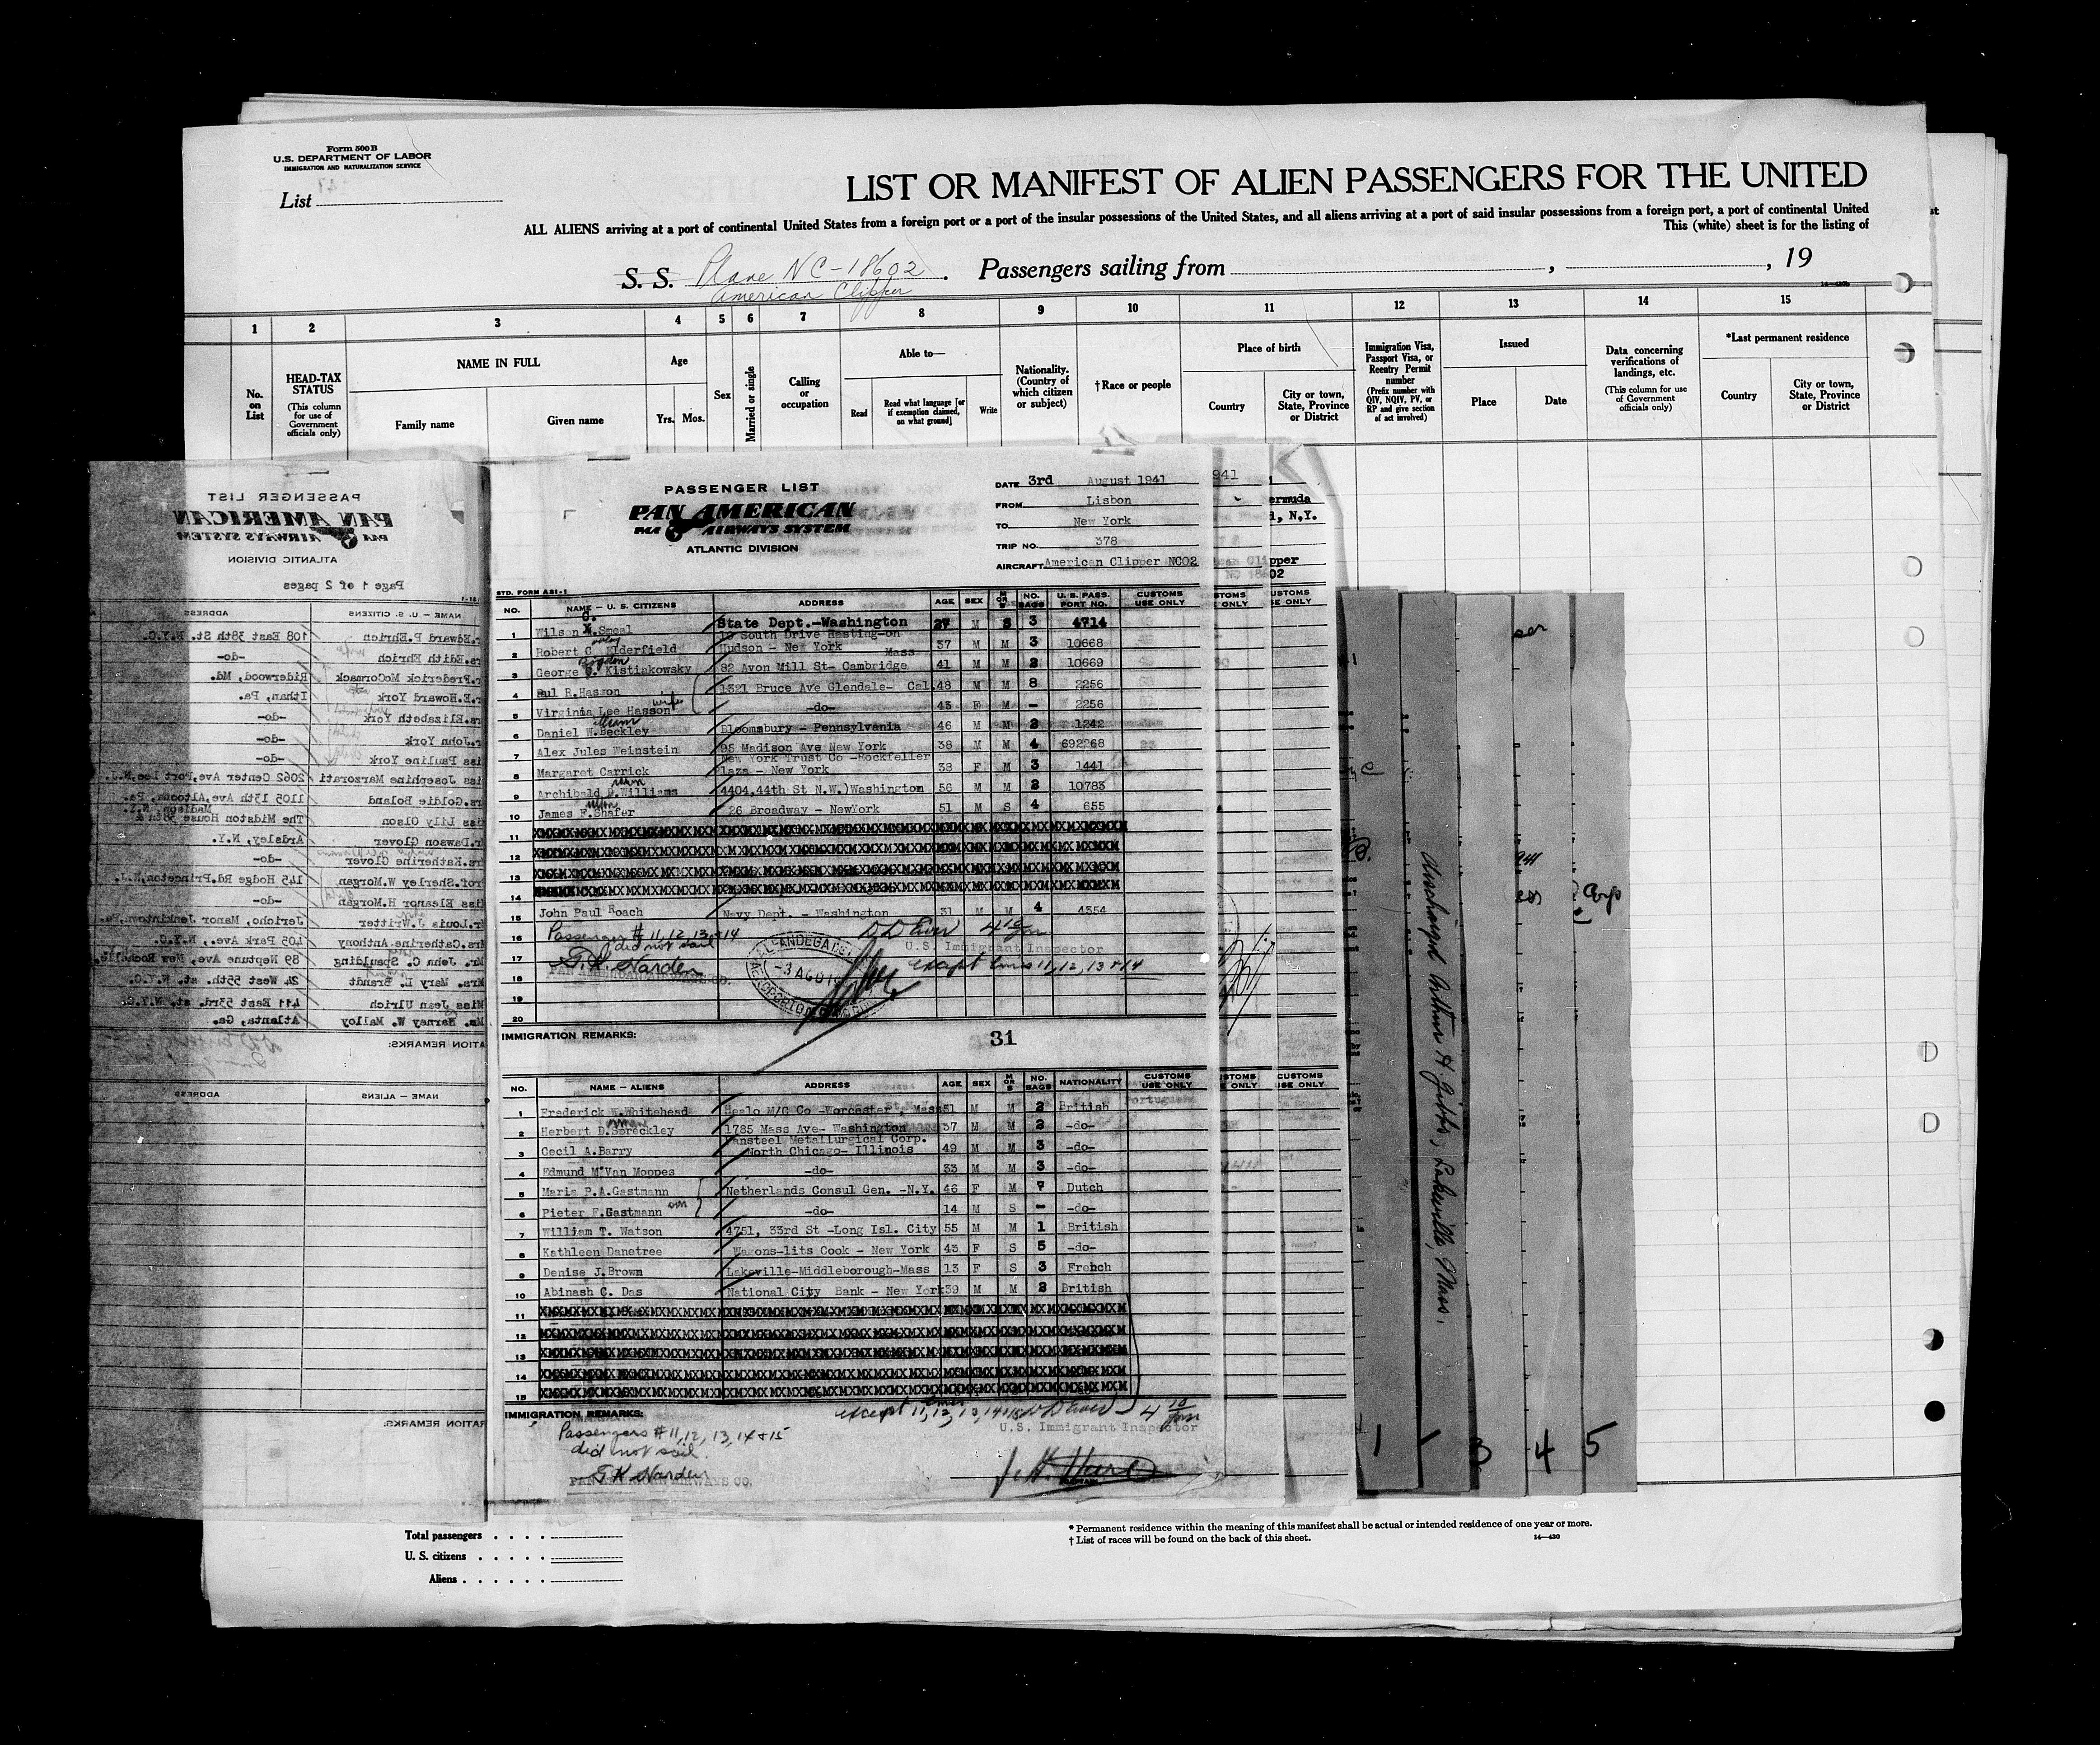 Form 500 B
U.S. DEPARTMENT OF LABOR
IMMIGRATION AND NATURALIZATION SERVICE
List
LIST OR MANIFEST OF ALIEN PASSENGERS FOR THE UNITED
ALL ALIENS arriving at a port of continental United States from a foreign port or a port of the insular possessions of the United States, and all aliens arriving at a port of said insular possessions from a foreign port, a port of continental United
This (white) sheet is for the listing of
S. S. Plane NC-18602. Passengers sailing from , , 19
American Clipper
1 2 3 4 5 6 7 8 9 10 11 12 13 14 15
No. on List
HEAD-TAX STATUS (This column for use of Government officials only)
NAME IN FULL
Family name Given name
Age
Yrs. Mos.
Sex
Married or single
Calling or occupation
Able to—
Read Read what language [or if exemption claimed, on what ground] Write
Nationality. (Country of which citizen or subject)
†Race or people
Place of birth
Country City or town, State, Province or District
Immigration Visa, Passport Visa, or Reentry Permit number (Prefix number with QIV, NQIV, PV, or RP and give section of act involved)
Issued
Place Date
Data concerning verifications of landings, etc. (This column for use of Government officials only)
*Last permanent residence
Country City or town, State, Province or District
PASSENGER LIST
PAN AMERICAN
PAA AIRWAYS SYSTEM
ATLANTIC DIVISION
DATE 3rd August 1941
FROM Lisbon
TO New York
TRIP NO. 378
AIRCRAFT American Clipper NC02
STD. FORM AS1-1
NO. NAME — U. S. CITIZENS ADDRESS AGE SEX M OR S NO. BAGS U. S. PASS. PORT NO. CUSTOMS USE ONLY
1 Wilson G. Smeal State Dept.-Washington 27 M S 3 4714
2 Robert C Elderfield 19 South Drive Hasting-on Hudson - New York 37 M M 3 10668
3 George Bogdan Kistiakowsky 82 Avon Mill St- Cambridge Mass 41 M M 2 10669
4 Paul R.Hasson 1321 Bruce Ave Glendale- Cal. 48 M M 8 2256
5 Virginia Lee Hasson wife -do- 43 F M - 2256
6 Daniel W.Beckley Bloomsbury - Pennsylvania 46 M M 2 1242
7 Alex Jules Weinstein 95 Madison Ave New York 38 M M 4 692268
8 Margaret Carrick New York Trust Co -Rockfeller Plaza - New York 38 F M 3 1441
9 Archibald D.Williams 4404,44th St N.W.)Washington 56 M M 2 10783
10 James F.Shafer 26 Broadway - NewYork 51 M S 4 655
11
12
13
14
15 John Paul Roach Navy Dept. - Washington 31 M M 4 4354
16 Passenger # 11, 12, 13 + 14
did not sail
17 U.S. Immigrant Inspector
T.K. Harden except lines 11, 12, 13 + 14
18 PAN AMERICAN AIRWAYS CO.
19
20
-3 AGO 19
IMMIGRATION REMARKS: 31
NO. NAME — ALIENS ADDRESS AGE SEX M OR S NO. BAGS NATIONALITY CUSTOMS USE ONLY
1 Frederick W.Whitehead Heald M/C Co -Worcester, Mass 51 M M 2 British
2 Herbert D.Spreckley 1785 Mass Ave- Washington 37 M M 2 -do-
3 Cecil A.Barry Fansteel Metallurgical Corp. North Chicago- Illinois 49 M M 3 -do-
4 Edmund M.Van Moppes -do- 33 M M 3 -do-
5 Maria P.A.Gastmann Netherlands Consul Gen. -N.Y. 46 F M 7 Dutch
6 Pieter F.Gastmann son -do- 14 M S - -do-
7 William T. Watson 4751, 33rd St -Long Isl. City 55 M M 1 British
8 Kathleen Danetree Wagons-lits Cook - New York 43 F S 5 -do-
9 Denise J.Brown Lakeville-Middleborough-Mass 13 F S 3 French
10 Abinash C. Das National City Bank - New York 39 M M 2 British
11
12
13
14
15
IMMIGRATION REMARKS:
except lines 11, 12, 13, 14 + 15
U.S. Immigrant Inspector
Passengers # 11, 12, 13, 14 + 15
did not sail.
T K Harden
PAN AMERICAN AIRWAYS CO.
PASSENGER LIST
PAN AMERICAN
PAA AIRWAYS SYSTEM
ATLANTIC DIVISION
Page 1 of 2 pages
NAME — U. S. CITIZENS ADDRESS
r.Edward P.Ehrich 108 East 38th St. N.Y.C.
rs.Edith Ehrich -do-
r.Frederick McCormack Riderwood, Md.
r.E.Howard York Ithan, Pa.
rs.Elizabeth York -do-
r.John York -do-
iss Pauline York -do-
iss Josephine Marzorati 2062 Center Ave,Fort Lee,N.J.
rs.Goldie Boland 1105 13th Ave,Altoona, Pa.
iss Lily Olson The Midston House 38th & Madison, N.Y.
r.Dawson Glover Ardsley, N.Y.
rs.Katherine Glover -do-
rof.Sherley W.Morgan 145 Hodge Rd.Princeton,N.J.
iss Eleanor H.Morgan -do-
r.Louis J.Writter Jericho, Manor Jenkintown,Pa.
rs.Catherine Anthony 405 Park Ave., N.Y.C.
Mr. John C. Spaulding 89 Neptune Ave, New Rochelle,
Mrs. Mary L. Brandt 24 West 55th. st. N.Y.C.
Miss Jean Ulrich 411 East 53rd. st. N.Y.C.
Mr. Harney W. Malloy Atlanta, Ga.
ATION REMARKS:
NAME — ALIENS ADDRESS
ATION REMARKS:
941
ermuda
, N.Y.
pper
02
STOMS E ONLY
USTOMS SE ONLY
Discharged Arthur H Gibbs, Lakeville, Mass.
1 3 4 5
Total passengers
U. S. citizens
Aliens
* Permanent residence within the meaning of this manifest shall be actual or intended residence of one year or more.
† List of races will be found on the back of this sheet.
14—430